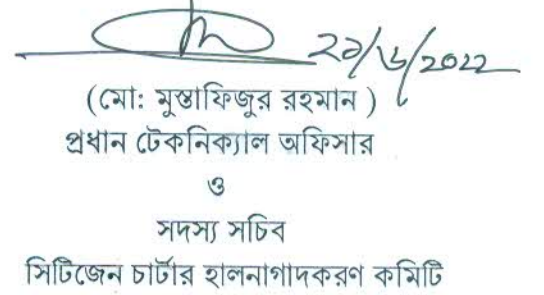 ২১/৬/2022
(মো: মুস্তাফিজুর রহমান )
প্রধান টেকনিক্যাল অফিসার
ও
সদস্য সচিব
সিটিজেন চার্টার হালনাগাদকরণ কমিটি